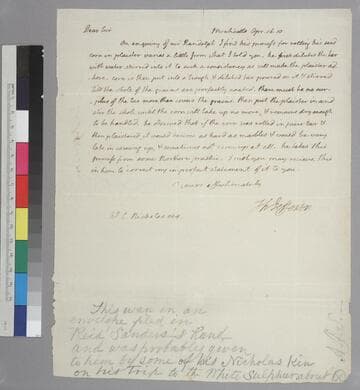 Dear Sir Monticello Apr. 16. 10
On enquiry of mr Randolph I find his process for rolling his seed
corn in plaister varies a little from what I told you. he first dilutes the tar
with water stirred into it to such a consistency as will make the plaister ad
here. corn is then put into a trough & diluted tar poured on it & stirred
till the whole of the grains are perfectly coated. there must be no sur-
plus of the tar more than covers the grains. then put the plaister in and
stir the whole until the corn will take up no more, & remains dry enough
to be handled. he observed that if the corn was rolled in pure tar &
then plaistered it would become as hard as marbles & would be very
late in coming up, & sometimes not coming up at all. he takes this
process from some Northern practice. I wish you may recieve this
in time to correct my imperfect statement of it to you.
Yours affectionately
Th: Jefferson
W. C. Nicholas esq.
This was in an
envelope filed in
Reid Sanders's Hand
and was probably given
to him by some of his Nicholas Kin
on his Trip to the White Sulphur about